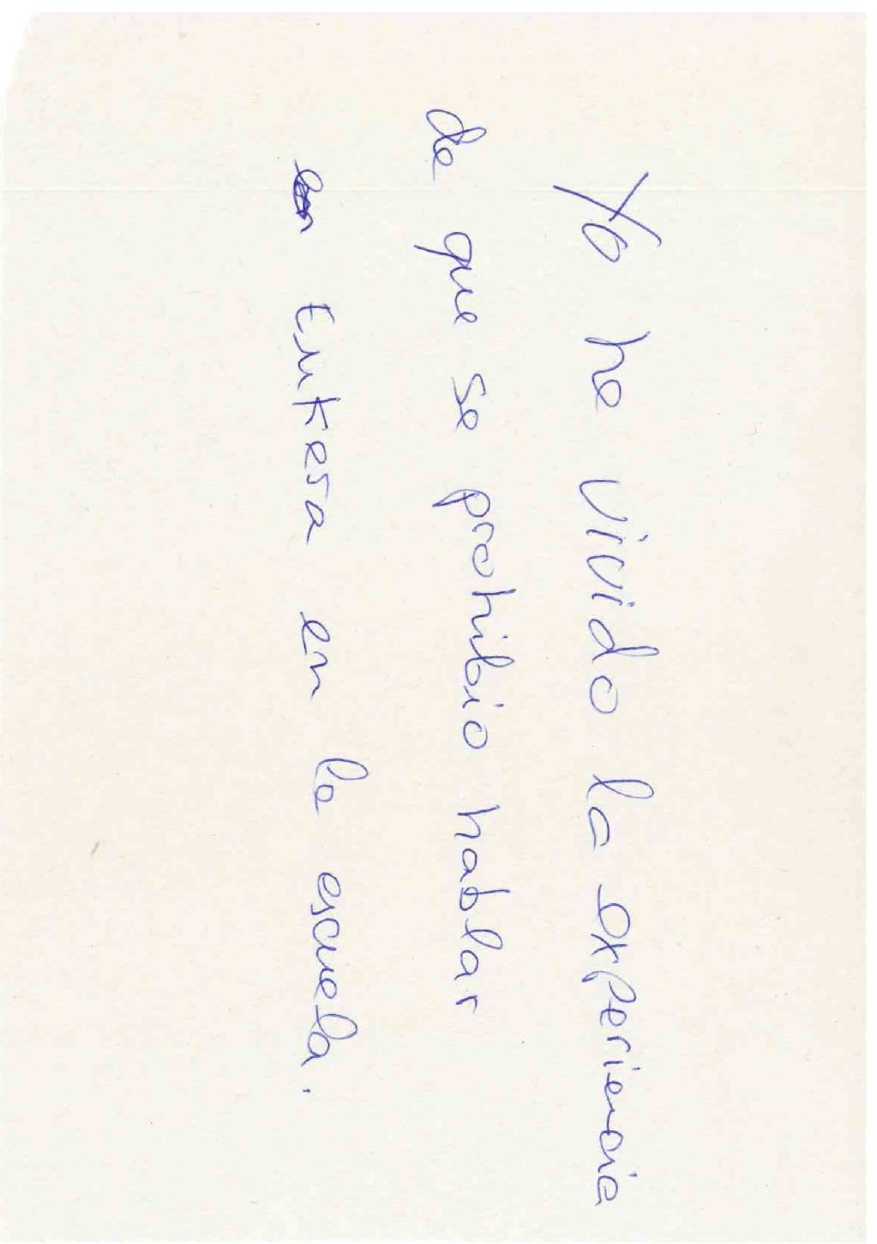 Yo he vivido la experiencia
de que se prohibio hablar
Eukera en la escuela.